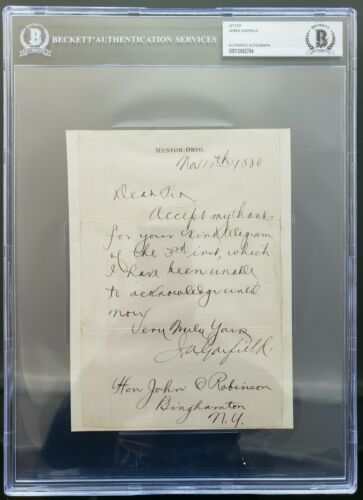 BECKETT AUTHENTICATION SERVICES
LETTER
JAMES GARFIELD
AUTHENTIC AUTOGRAPH
BECKETT
BECKETT
MENTOR, OHIO.
Nov 17th 1880
Dear Sir
Accept my thanks
for your kind telegram
of the 3rd inst, which
I have been unable
to acknowledge until
now
Very Truly Yours
J.A. Garfield.
Hon John C Robinson
Binghamton
N.Y.